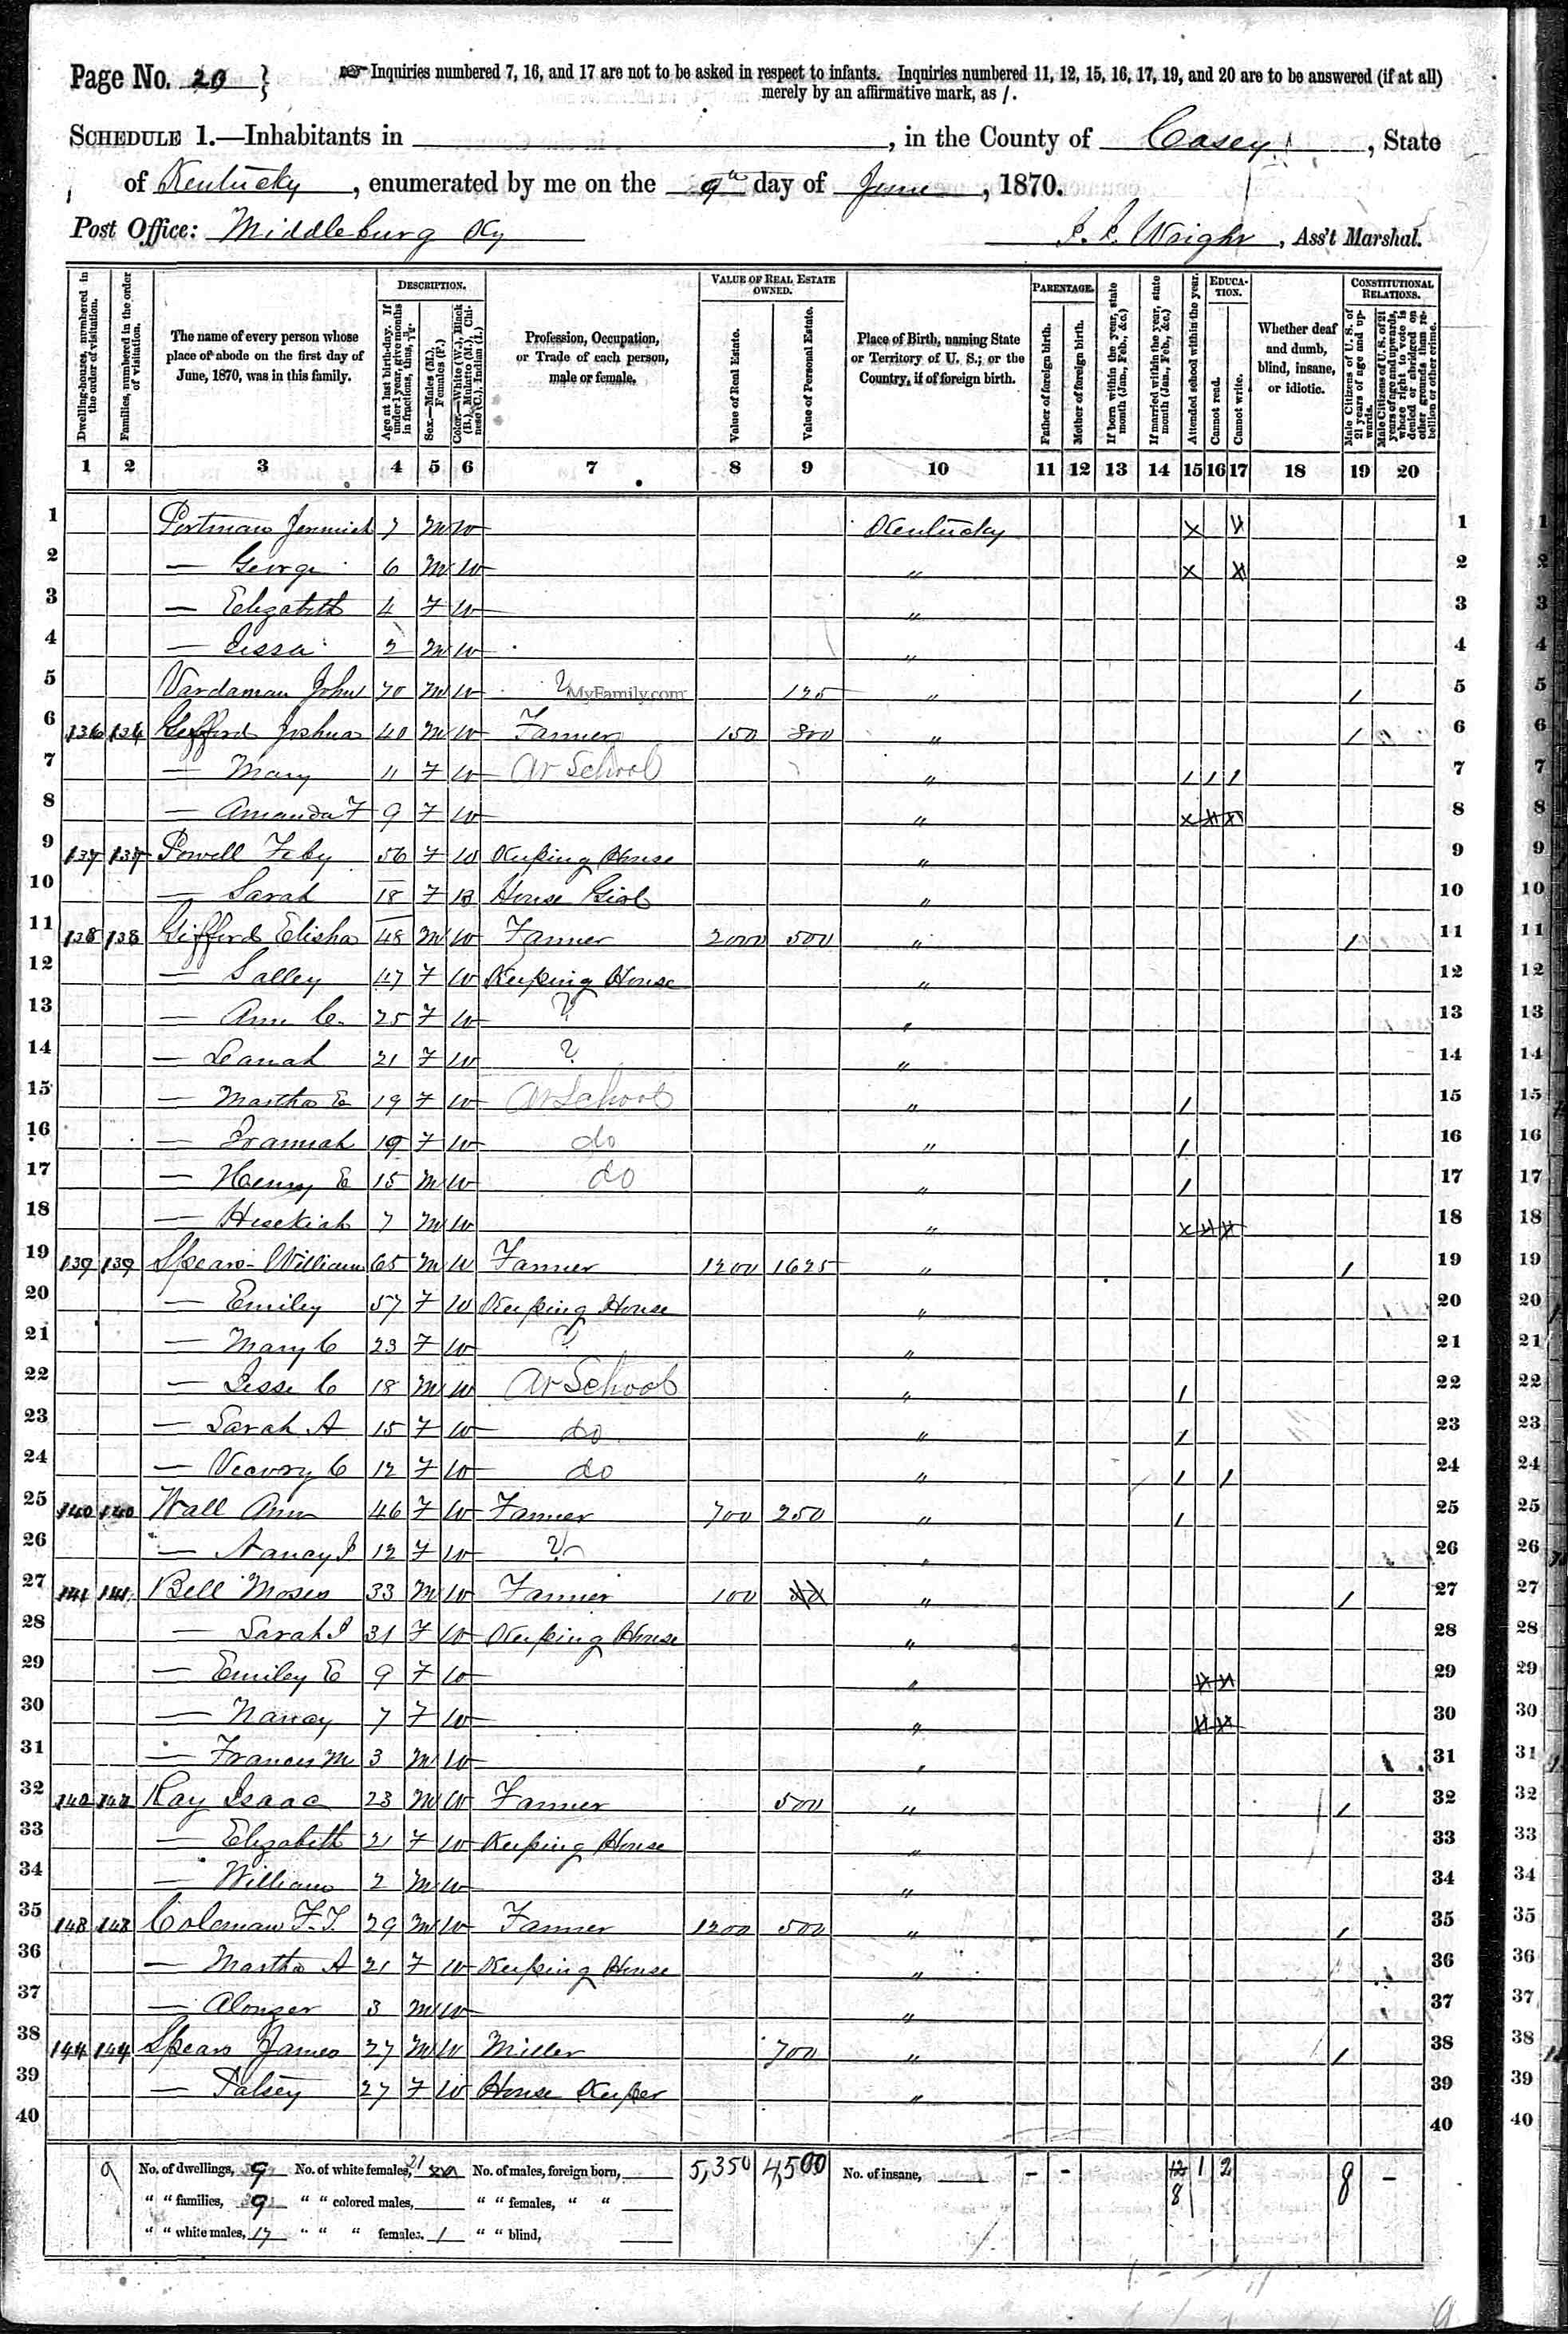 Page No. 20 } ☞ Inquiries numbered 7, 16, and 17 are not to be asked in respect to infants. Inquiries numbered 11, 12, 15, 16, 17, 19, and 20 are to be answered (if at all)
merely by an affirmative mark, as /.
SCHEDULE 1.—Inhabitants in , in the County of Casey , State
of Kentucky , enumerated by me on the 9th day of June , 1870.
Post Office: Middleburg Ky Wright , Ass't Marshal.
Dwelling-houses, numbered in the order of visitation.
Families, numbered in the order of visitation.
The name of every person whose place of abode on the first day of June, 1870, was in this family.
DESCRIPTION.
Age at last birth-day. If under 1 year, give months in fractions, thus,
Sex.—Males (M.), Females (F.)
Color.—White (W.), Black (B.), Mulatto (M.), Chinese (C.), Indian (I.)
Profession, Occupation, or Trade of each person, male or female.
VALUE OF REAL ESTATE OWNED.
Value of Real Estate.
Value of Personal Estate.
Place of Birth, naming State or Territory of U. S.; or the Country, if of foreign birth.
PARENTAGE.
Father of foreign birth.
Mother of foreign birth.
If born within the year, state month (Jan., Feb., &c.)
If married within the year, state month (Jan., Feb., &c.)
Attended school within the year.
EDUCATION.
Cannot read.
Cannot write.
Whether deaf and dumb, blind, insane, or idiotic.
CONSTITUTIONAL RELATIONS.
Male Citizens of U. S. of 21 years of age and upwards.
Male Citizens of U. S. of 21 years of age and upwards, whose right to vote is denied or abridged on other grounds than rebellion or other crime.
1 2 3 4 5 6 7 8 9 10 11 12 13 14 15 16 17 18 19 20
1 Portman 7 M W Kentucky x 1
2 — George 6 M W " x 2
3 — Elizabeth 4 F W " 3
4 — Jessa 2 M W " 4
5 Vardaman John 70 M W ? MyFamily.com 125 " / 5
6 136 136 Gifford Joshua 40 M W Farmer 150 800 " / 6
7 — Mary 11 F W At School " / / / 7
8 — Amanda F 9 F W " x 8
9 137 137 Powell Feby 56 F W Keeping House " 9
10 — Sarah 18 F B House Girl " 10
11 138 138 Gifford Elisha 48 M W Farmer 2000 500 " / 11
12 — Salley 47 F W Keeping House " 12
13 — Ann C. 25 F W ? " 13
14 — Leanah 21 F W ? " 14
15 — Martha E 19 F W At School " / 15
16 — 19 F W do " / 16
17 — Henry E 15 M W do " / 17
18 — Hisekiah 7 M W " x 18
19 139 139 Spears William 65 M W Farmer 1200 1625 " / 19
20 — Emiley 57 F W Keeping House " 20
21 — Mary C 23 F W ? " 21
22 — Jesse C 18 M W At School " / 22
23 — Sarah A 15 F W do " / 23
24 — C 12 F W do " / / 24
25 140 140 Wall Ann 46 F W Farmer 700 250 " / 25
26 — Nancy J 12 F W ? " 26
27 141 141 Bell Moses 33 M W Farmer 100 " / 27
28 — Sarah J 31 F W Keeping House " 28
29 — Emiley E 9 F W " 29
30 — Nancy 7 F W " 30
31 — Francis M 3 M W " 31
32 142 142 Ray Isaac 23 M W Farmer 500 " / 32
33 — Elizabeth 21 F W Keeping House " 33
34 — William 2 M W " 34
35 143 143 Coleman F. T. 29 M W Farmer 1200 500 " / 35
36 — Martha A 21 F W Keeping House " 36
37 — Alonzer 3 M W " 37
38 144 144 Spears James 27 M W Miller 700 " / 38
39 — Patsey 27 F W House Keeper " 39
40 40
9 No. of dwellings, 9 No. of white females, 21 No. of males, foreign born, 5,350 4,500 No. of insane, - - 12 8 1 2 8 -
" " families, 9 " " colored males, " " females, " "
" " white males, 17 " " " females, 1 " " blind,